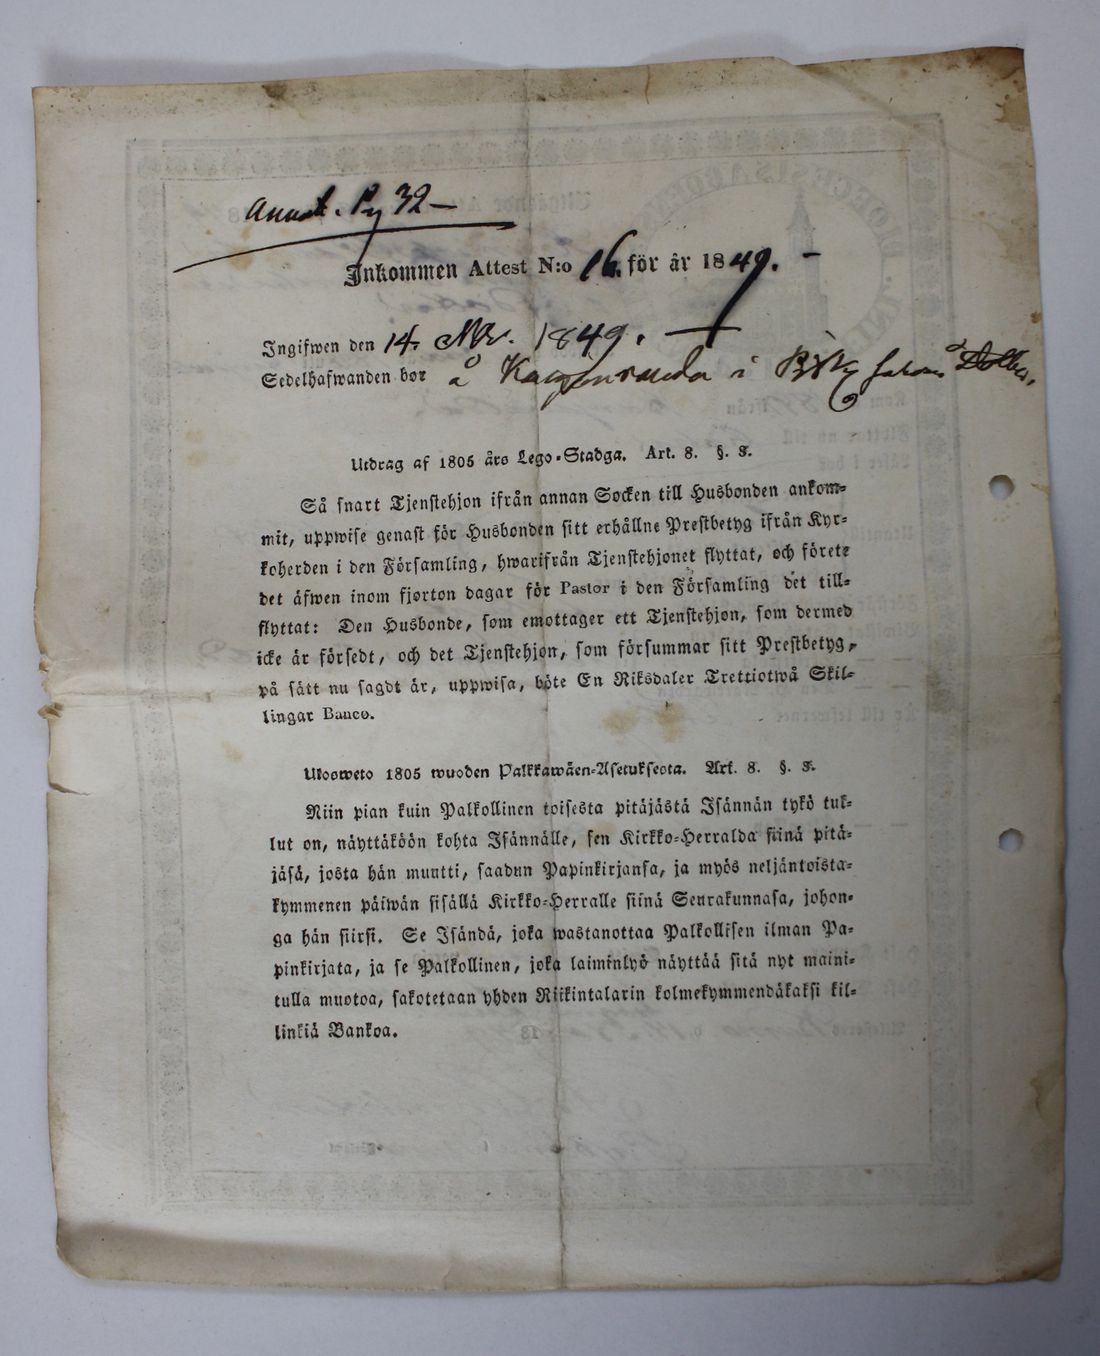 Annot. Pg 32 —
Inkommen Attest N:o 16. för år 1849. —
Ingifwen den 14. 1849. —
Sedelhafwanden bor å i
Utdrag af 1805 års Lego-Stadga. Art. 8. §. 3.
Så snart Tjenstehjon ifrån annan Socken till Husbonden ankom-
mit, uppwise genast för Husbonden sitt erhållne Prestbetyg ifrån Kyr-
koherden i den Församling, hwarifrån Tjenstehjonet flyttat, och förete
det äfwen inom fjorton dagar för Pastor i den Församling det till-
flyttat: Den Husbonde, som emottager ett Tjenstehjon, som dermed
icke är försedt, och det Tjenstehjon, som försummar sitt Prestbetyg,
på sätt nu sagdt är, uppwisa, böte En Riksdaler Trettiotwå Skil-
lingar Banco.
Ulosweto 1805 wuoden Palkkawäen-Asetuksesta. Art. 8. §. 3.
Niin pian kuin Palkollinen toisesta pitäjästä Isännän tykö tul-
lut on, näyttäköön kohta Isännälle, sen Kirkko-Herralda siinä pitä-
jäsä, josta hän muutti, saadun Papinkirjansa, ja myös neljäntoista-
kymmenen päiwän sisällä Kirkko-Herralle siinä Seurakunnasa, johon-
ga hän siirsi. Se Isändä, joka wastanottaa Palkollisen ilman Pa-
pinkirjata, ja se Palkollinen, joka laiminlyö näyttää sitä nyt maini-
tulla muotoa, sakotetaan yhden Riikintalarin kolmekymmendäkaksi kil-
linkiä Bankoa.